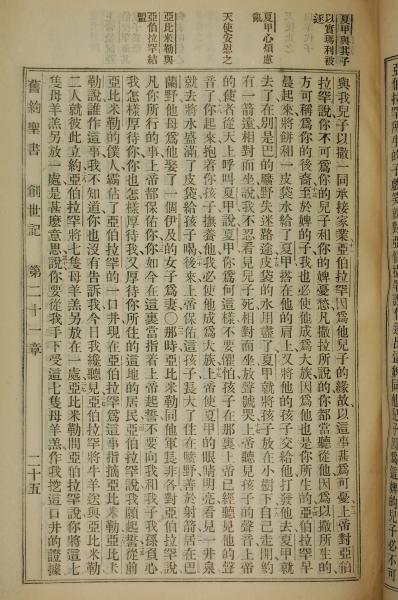 夏甲與其子
以實瑪利被
逐
夏甲心煩慮
亂
天使安慰之
亞比米勒與
亞伯拉罕結
盟
與我兒子以撒一同承接家業亞伯拉罕因爲他兒子的緣故以這事甚爲可憂上帝對亞伯
拉罕說你不可爲你的兒子和你的婢憂愁凡撒拉所說的你都當聽從他因爲以撒所生的
方可稱爲你的後裔至於婢的子我也必使他成爲大族因爲他也是你所生的亞伯拉罕早
晨起來將餅和一皮袋水給了夏甲搭在他的肩上又將他的孩子交給他打發他去夏甲就
去了在別是巴的曠野失迷路途皮袋的水用盡了夏甲就將孩子放在小樹下自己走開約
有一箭遠相對而坐說我不忍看見兒子死相對而坐放聲號哭上帝聽見孩子的聲音上帝
的使者從天上呼叫夏甲說夏甲你爲何這樣不要懼怕孩子在那裏上帝已經聽見他的聲
音了你起來抱着你孩子撫養他我必使他成爲大族上帝使夏甲的眼睛明亮看見一井泉
就去將水盛滿了皮袋給孩子喝後來上帝保佑這孩子長大了住在曠野善於射箭居在巴
蘭野他母爲他娶了一個伊及的女子爲妻○那時亞比米勒同他軍長非各對亞伯拉罕說
凡你所行的事上帝都保佑你你如今在這裏當指着上帝起誓不要向我和我子我孫負心
我怎樣厚待你你也怎樣厚待我又厚待你所住的這地的居民亞伯拉罕說我願起誓從前
亞比米勒的僕人霸佔了亞伯拉罕的一口井現在亞伯拉罕爲這事指摘亞比米勒亞比米
勒說誰作這事我不知道你也沒有告訴我今日我纔聽見亞伯拉罕將牛羊送與亞比米勒
二人就彼此立約亞伯拉罕將七隻母羊羔另放在一處亞比米勒問亞伯拉罕說你將這七
隻母羊羔另放一處是甚麽意思說你要從我手下受這七隻母羊羔作我挖這口井的證據
舊約聖書 創世記 第二十一章 二十五